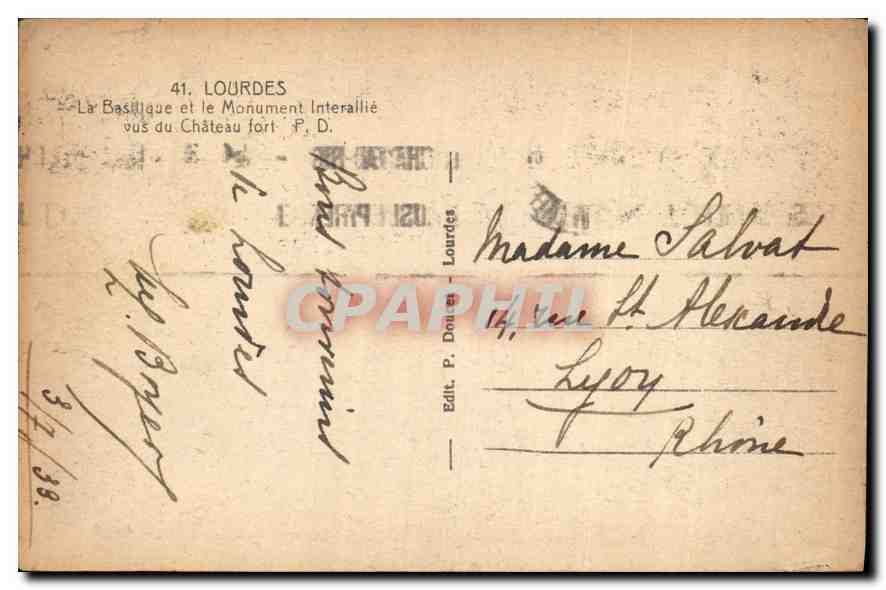 41. LOURDES
La Basilique et le Monument Interallié
vus du Château fort P. D.
Bons souvenirs
de Lourdes
Boyer
3/7/38.
Edit. P. Doucet - Lourdes
Madame Salvat
14, rue St. Alexandre
Lyon
Rhône
CPAPHIL